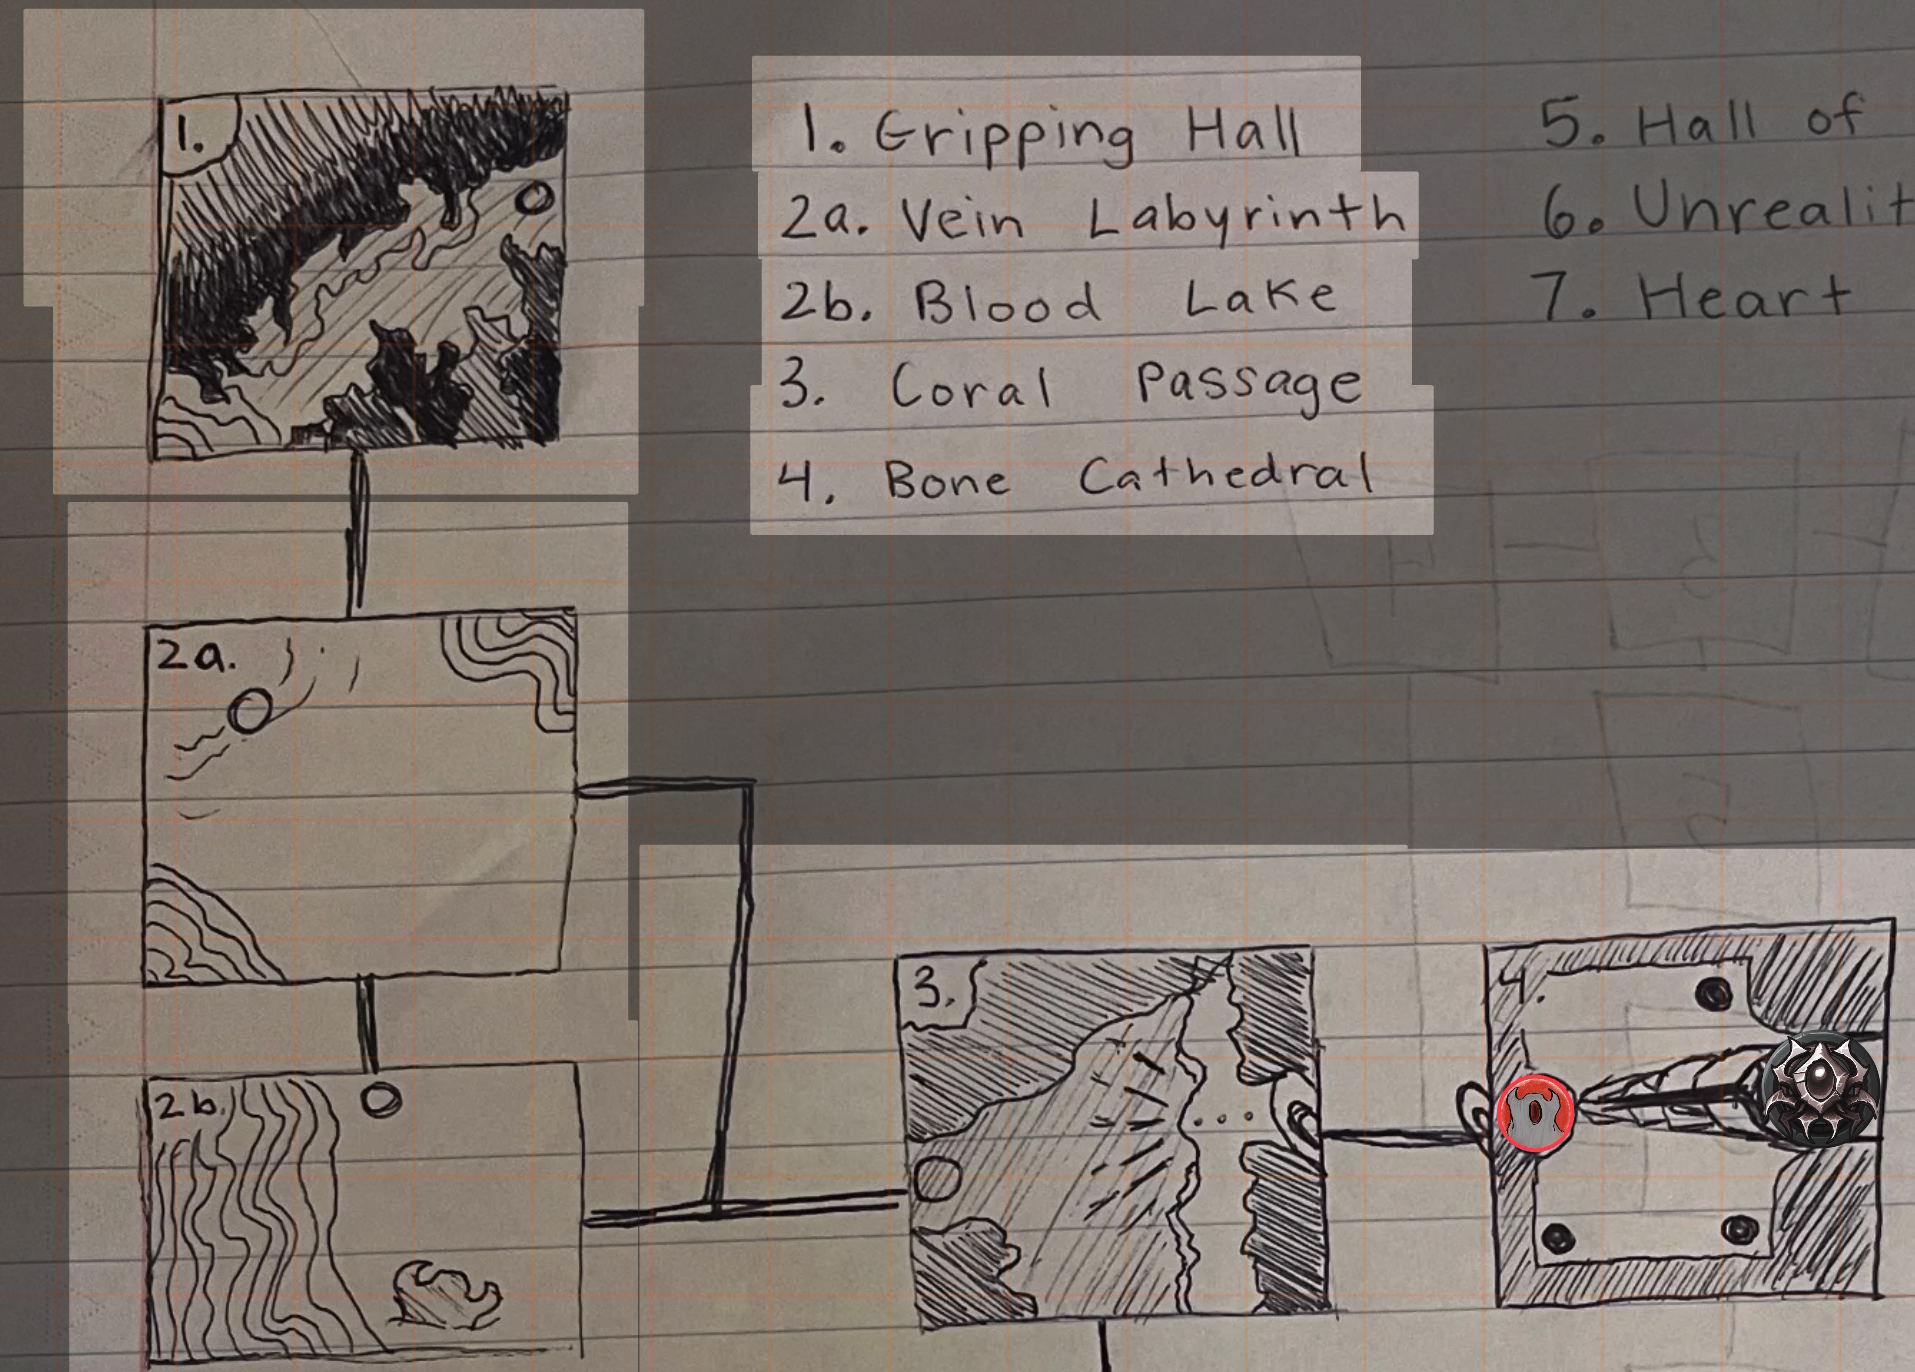 1.
1. Gripping Hall
2a. Vein Labyrinth
2b. Blood Lake
3. Coral Passage
4. Bone Cathedral
5. Hall of
6. Unrealit
7. Heart
2a.
2b.
3.
4.